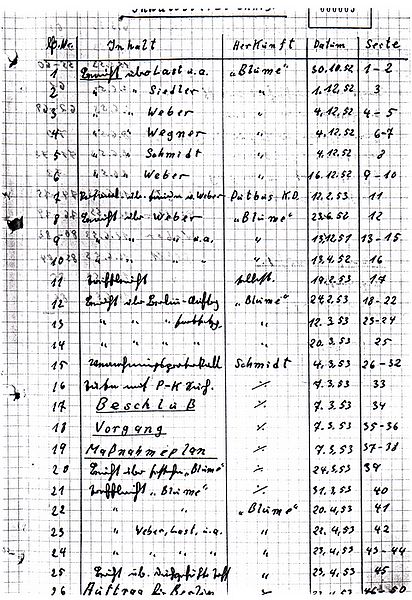 Inhaltsverzeichnis.
000003
Lf.Nr. Inhalt Herkunft Datum Seite
1 Bericht über Last u.a. „Blume" 30.10.52 1-2
2 " " Siedler " 1.12.52 3
3 " " Weber " 4.12.52 4-5
4 " " Wegner " 4.12.52 6-7
5 " " Schmidt " 4.12.52 8
6 " " Weber " 16.12.52 9-10
7 Weber K.D. 12.2.53 11
8 Bericht über Weber „Blume" 23.6.52 12
9 " " " u.a. " 13.12.51 13-15
10 " " " " 13.4.52 16
11 Treffbericht selbst. 19.2.53 17
12 Bericht über Berlin-Auftrag „Blume" 24.2.53 18-22
13 " " " " 12.3.53 23-24
14 " " " " 20.3.53 25
15 Vernehmungsprotokoll Schmidt 4.3.53 26-32
16 mit P-K ⁒ 7.3.53 33
17 Beschluß ⁒ 7.3.53 34
18 Vorgang ⁒ 7.3.53 35-36
19 Maßnahmeplan ⁒ 7.3.53 37-38
20 Bericht über „Blume" ⁒ 24.3.53 39
21 Treffbericht „Blume" ⁒ 31.3.53 40
22 " " „Blume" 20.4.53 41
23 " Weber, Last, u.a. " 22.4.53 42
24 " " " " " 23.4.53 43-44
25 Bericht üb. " 23.4.53 45
26 Auftrag für Berlin 46-50